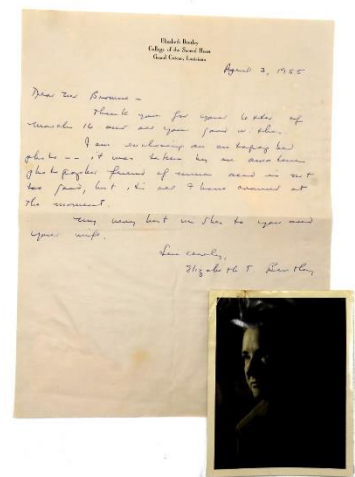 Elizabeth Bentley
College of the Sacred Heart
Grand Coteau, Louisiana
April 3, 1955
Dear Mr. Browne –
Thank you for your letter of
March 16 and all your good wishes.
I am enclosing an autographed
photo -- it was taken by an amateur
photographer friend of mine and is not
too good, but it's all I have around at
the moment.
My very best wishes to you and
your wife.
Sincerely,
Elizabeth T. Bentley